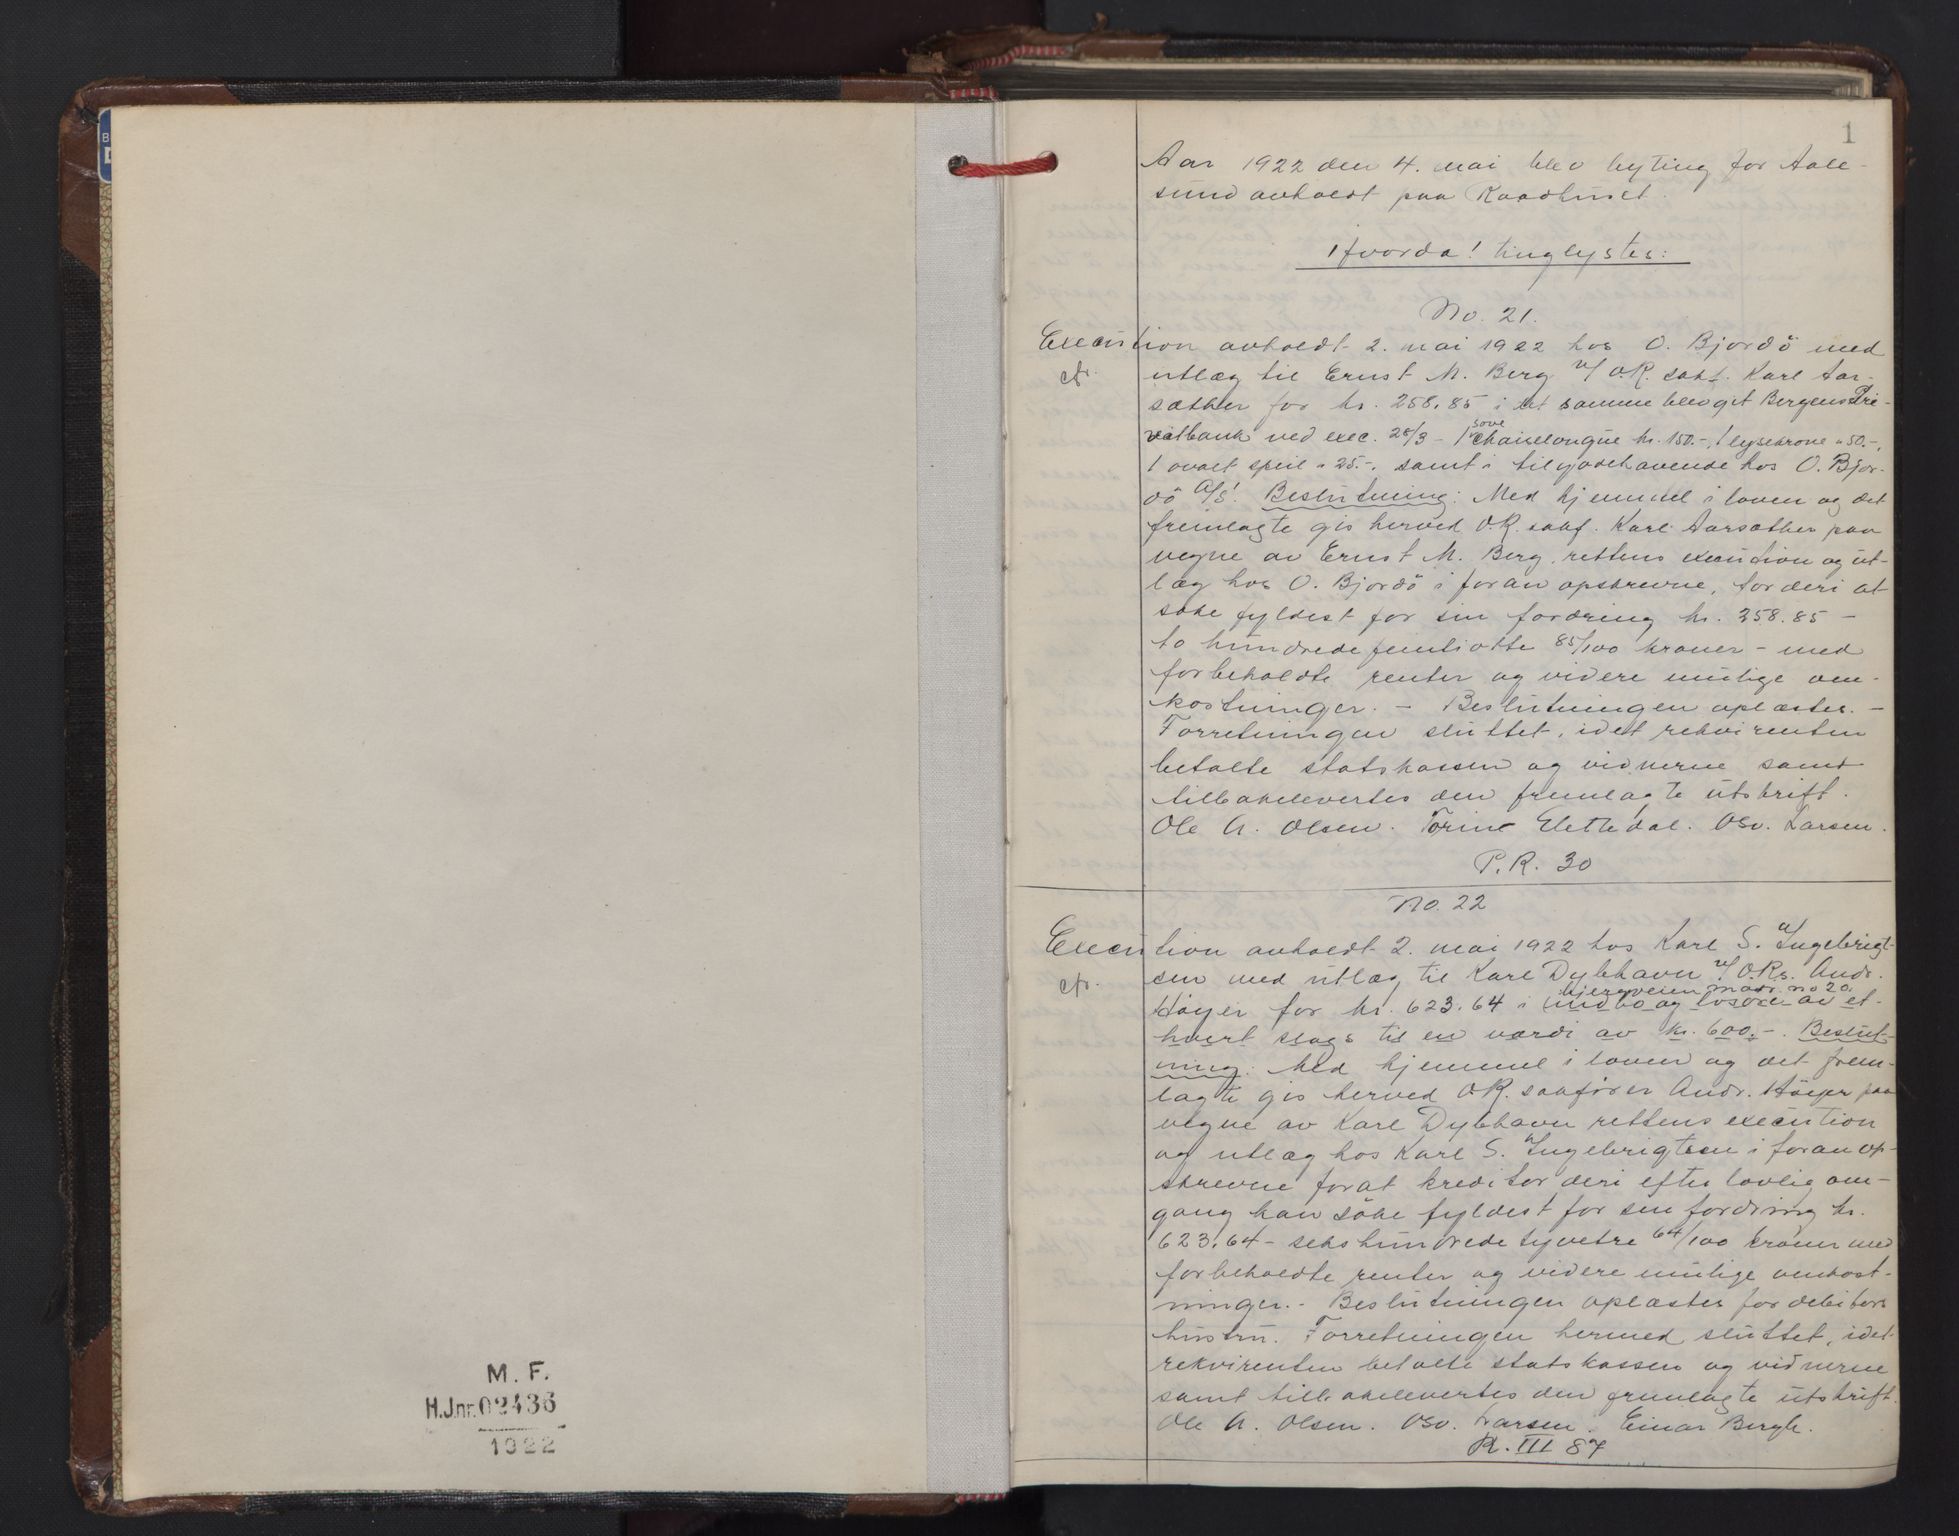 1
Aar 1922 den 4. mai blev byting for Aale-
sund avholdt paa Raadhuset.
Hvorda! tinglystes:
No. 21.
Execution avholdt 2. mai 1922 hos O. Bjordö med
cfr.
utlæg til Ernst M. Berg v/ O.R. sakf. Karl Aar-
sæther for kr. 258.85 i det samme blev git Bergens Pri-
vatbank ved exec. 28/3 - 1 sove chaiselongue kr. 150.-, 1 lysekrone " 50.-,
1 ovalt speil " 25.-. samt i tilgodehavende hos O. Bjor-
dö A/S! Beslutning: Med hjemmel i loven og det
fremlagte gis herved O.R. saкf. Karl Aarsæther paa
vegne av Ernst M. Berg, rettens execution og ut-
læg hos O. Bjordö i foran opskrevne, for deri at
söke fyldest for sin fordring kr. 258.85 -
to hundrede femtiotte 85/100 kroner - med
forbeholdte renter og videre mulige om-
kostninger. - Beslutningen oplæstes. -
Forretningen sluttet, idet rekvirenten
betalte statskassen og vidnerne samt
tilbakelevertes den fremlagte utskrift.
Ole A. Olsen. Torine Slettedal. Osv. Larsen.
P.R. 30
No. 22
Execution avholdt 2. mai 1922 hos Karl S. A/ Ingebrigt-
cfr.
sen med utlæg til Karl Dybhavn v/ O.Rs. Andr.
Höyer for kr. 623.64 i indbo og lösöre av et-
bjergveien matr. no 20.
hvert slags til en værdi av kr. 600.-. Beslut-
ning: Med hjemmel i loven og det frem-
lagte gis herved O.R. sakförer Andr. Höyer paa
vegne av Karl Dybhavn rettens execution
og utlæg hos Karl S. A/ Ingebrigtsen i foran op-
skrevne forat kreditor deri efter lovlig om-
gang kan söke fyldest for sin fordring kr.
623.64 - sekshundrede tyvetre 64/100 kroner med
forbeholdte renter og videre mulige omkost-
ninger. - Beslutningen oplæstes for debitors
hustru. Forretningen hermed sluttet, idet
rekvirenten betalte statskassen og vidnerne
samt tilbakelevertes den fremlagte utskrift.
Ole A. Olsen. Osv. Larsen. Einar Bergh.
R. III 87
M. F.
H.J.nr. 02436
1922